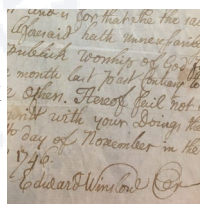 for that the said
aforesaid hath unnessarily
publick worship of God
month last past contrary to
Offten. Hereof fail not
with your Doings the
day of November in the
1746
Edward Winslow